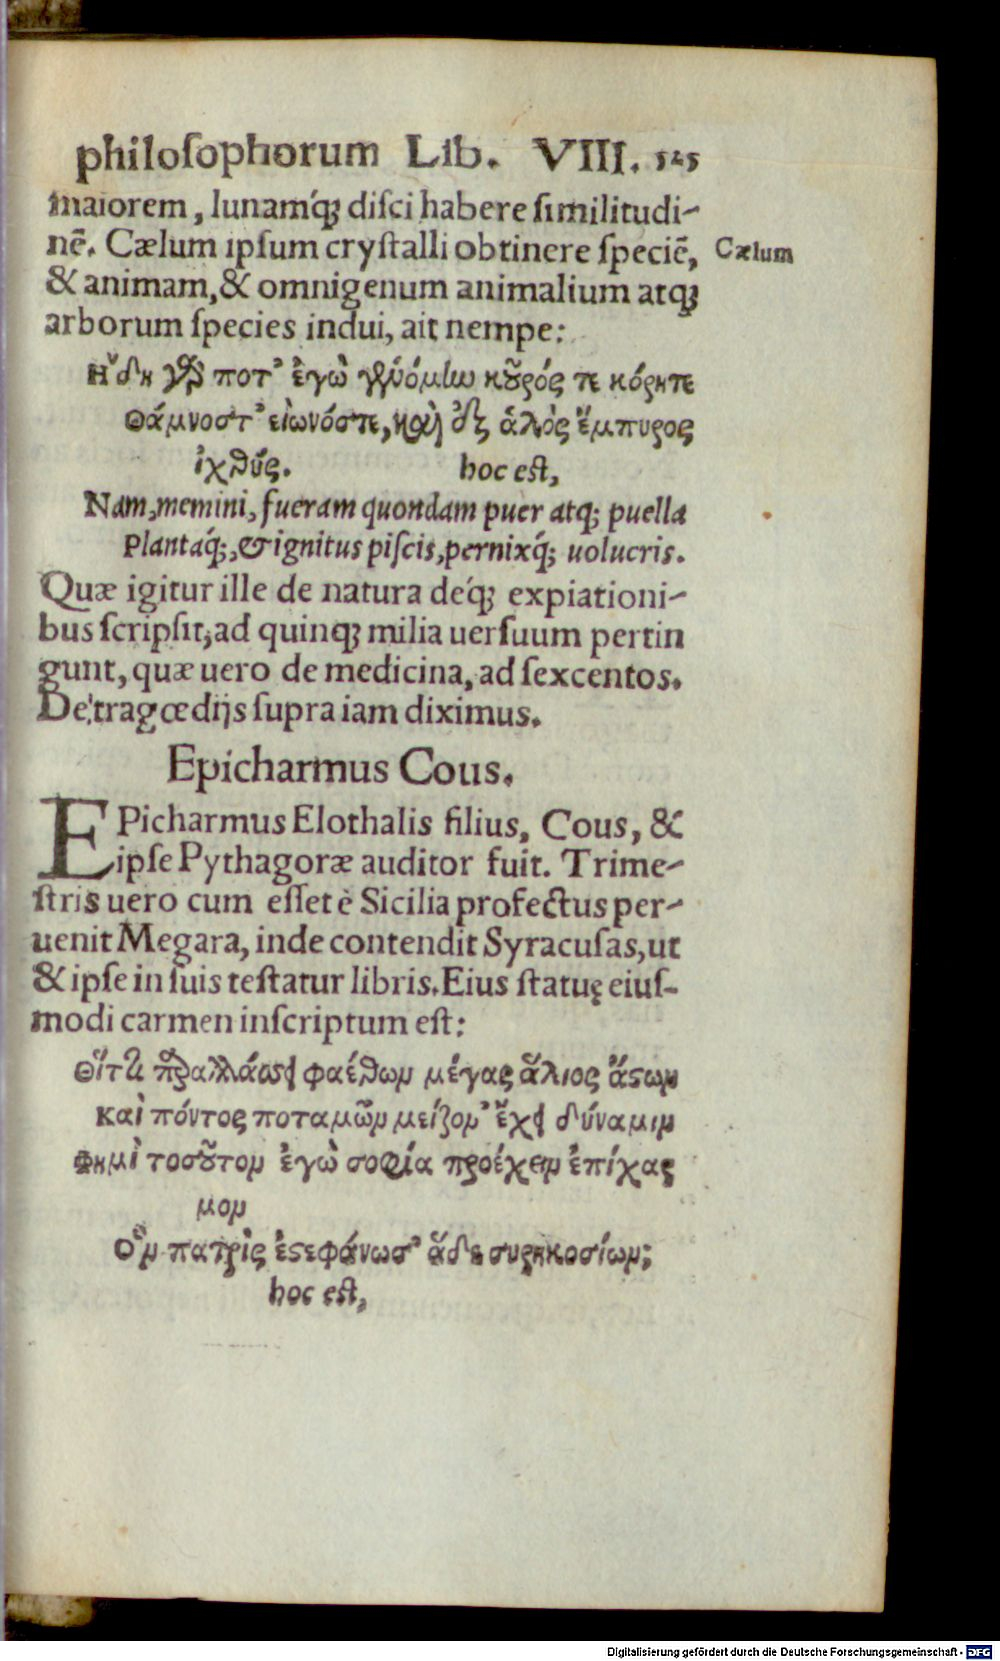 philoſophorum Lib. VIII. 525
maiorem, lunamq́ꝫ diſci habere ſimilitudi-
nē. Cælum ipſum cryſtalli obtinere ſpeciē,
Cælum
& animam, & omnigenum animalium atqꝫ
arborum ſpecies indui, ait nempe:
Ἤδη γάρ ποτ' ἐγὼ γενόμην κοῦρός τε κόρητε
Θάμνοστ' εἰωνόστε, καὶ ἐξ ἁλὸς ἔμπυρος
ἰχθύς. hoc eſt,
Nam, memini, fueram quondam puer atq; puella
Plantaq́;, & ignitus piſcis, pernixq́; uolucris.
Quæ igitur ille de natura deq́ꝫ expiationi-
bus ſcripſit, ad quinqꝫ milia uerſuum pertin
gunt, quæ uero de medicina, ad ſexcentos.
De tragœdijs ſupra iam diximus.
Epicharmus Cous.
EPicharmus Elothalis filius, Cous, &
ipſe Pythagoræ auditor fuit. Trime-
ſtris uero cum eſſet è Sicilia profectus per-
uenit Megara, inde contendit Syracuſas, ut
& ipſe in ſuis teſtatur libris. Eius ſtatuę eiuſ-
modi carmen inſcriptum eſt:
Εἴτι παραλλάσσει φαέθων μέγας ἅλιος ἄστρων
Καὶ πόντος ποταμῶν μείζον' ἔχει δύναμιν
Φημὶ τοσοῦτον ἐγὼ σοφίᾳ προέχειν ἐπίχαρ
μον
Ὃν πατρὶς ἐστεφάνωσ' ἅδε συρηκοσίων;
hoc eſt,
Digitalisierung gefördert durch die Deutsche Forschungsgemeinschaft - DFG